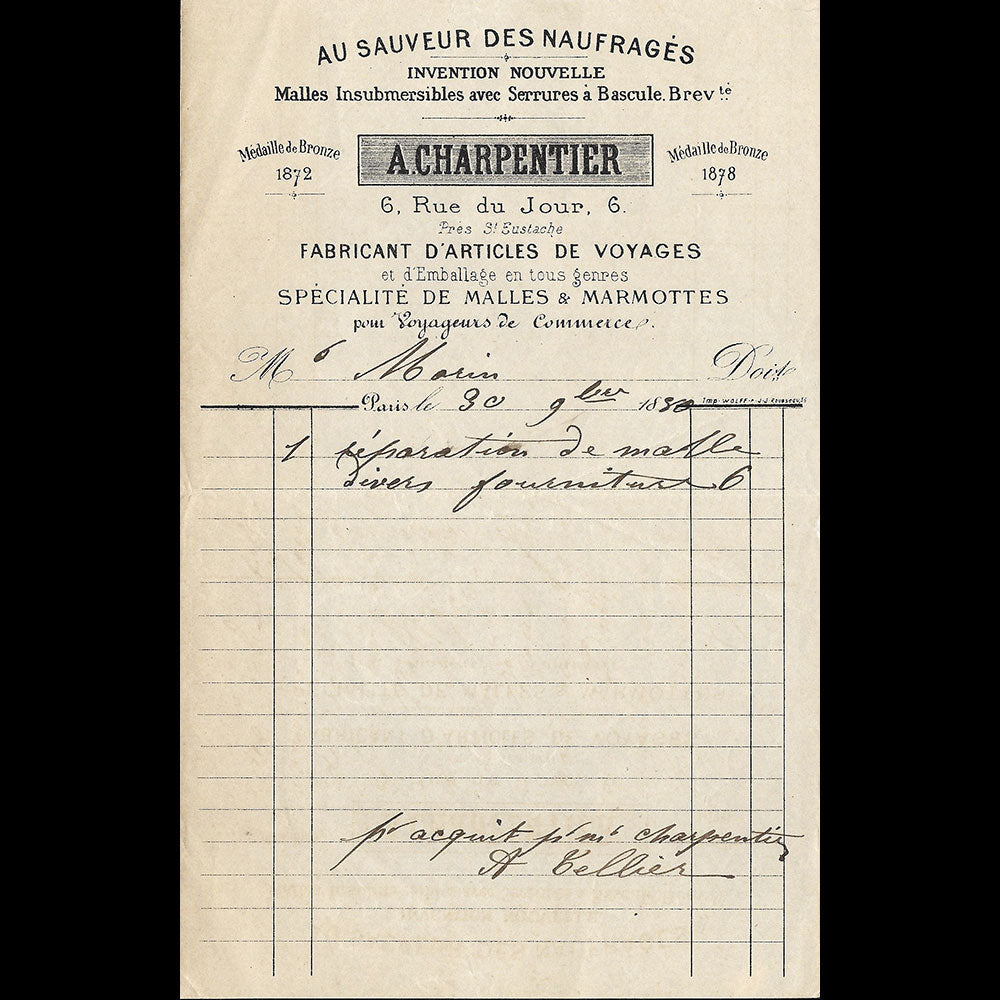 AU SAUVEUR DES NAUFRAGÉS
INVENTION NOUVELLE
Malles Insubmersibles avec Serrures à Bascule. Brev.té
Médaille de Bronze 1872
A. CHARPENTIER
Médaille de Bronze 1878
6, Rue du Jour, 6.
Près St Eustache
FABRICANT D'ARTICLES DE VOYAGES
et d'Emballage en tous genres
SPÉCIALITÉ DE MALLES & MARMOTTES
pour Voyageurs de Commerce.
Mr Morin Doit
Paris le 30 9bre 1880
Imp. WOLFF r. J.J. Rousseau
1 réparation de malle
divers fourniture 6
pr acquit pr mr charpentier
A Tellier